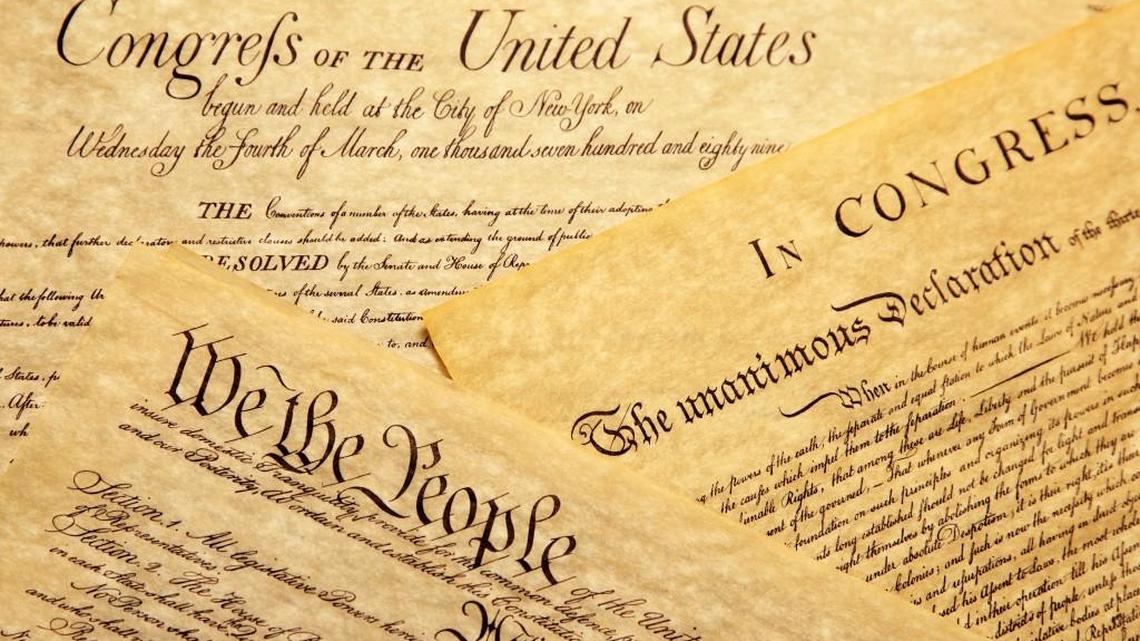 Congreſs OF THE United States
begun and held at the City of New-York, on
Wednesday the Fourth of March, one thousand seven hundred and eighty nine
THE Conventions of a number of the States, having at the time of their adopting
powers, that further and restrictive clauses should be added: And as extending the ground of public
RESOLVED by the Senate and House of
hat the following
of the several States, as
tures, to be valid
said Constitution
to, and
States,
After
wh
IN CONGRESS,
The unanimous Declaration of the
When in the Course of human events, it becomes necessary
the powers of the earth, the separate and equal station to which the Laws of Nature and
the causes which impel them to the separation. We hold the
unable Rights, that among these are Life, Liberty and the pursuit of
ent of the governed, — That whenever any Form of Government becomes
foundation on such principles and organizing its powers in such
long established should not be changed for light and
right themselves by abolishing the forms to which they are
under absolute Despotism, it is their right, it is
Colonies; and such is now the necessity which
and usurpations, all having in direct
his Assent to Laws, the most
in their operation till his
districts of people, unless
bodies at
We the People
insure domestic Tranquility, provide for the common defence, of the
and our Posterity, do ordain and establish this Constitution
Section. 1. All legislative Powers
of Representatives.
Section. 2. The House of
in each State shall have
No Person shall
and who shall